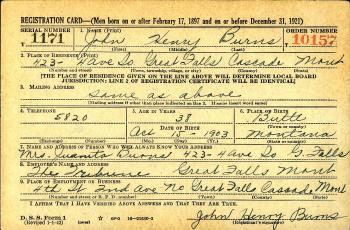 REGISTRATION CARD—(Men born on or after February 17, 1897 and on or before December 31, 1921)
SERIAL NUMBER 1. NAME (Print) ORDER NUMBER
1171 John Henry Burns 10157
(First) (Middle) (Last)
2. PLACE OF RESIDENCE (Print)
423- 4 Ave So Great Falls Cascade Mont
(Number and street) (Town, township, village, or city) (County) (State)
[THE PLACE OF RESIDENCE GIVEN ON THE LINE ABOVE WILL DETERMINE LOCAL BOARD
JURISDICTION; LINE 2 OF REGISTRATION CERTIFICATE WILL BE IDENTICAL]
3. MAILING ADDRESS
Same as above
[Mailing address if other than place indicated on line 2. If same insert word same]
4. TELEPHONE 5. AGE IN YEARS 6. PLACE OF BIRTH
5820 38 Butte
DATE OF BIRTH (Town or county)
15 - 1903 Montana
(Exchange) (Number) (Mo.) (Day) (Yr.) (State or country)
7. NAME AND ADDRESS OF PERSON WHO WILL ALWAYS KNOW YOUR ADDRESS
Mrs Juanita Burns 423-4 Ave So G. Falls
8. EMPLOYER'S NAME AND ADDRESS
The Tribune Great Falls Mont
9. PLACE OF EMPLOYMENT OR BUSINESS
4th St 2nd Ave No Great Falls Cascade Mont
(Number and street or R. F. D. number) (Town) (County) (State)
I AFFIRM THAT I HAVE VERIFIED ABOVE ANSWERS AND THAT THEY ARE TRUE.
D. S. S. Form 1
(Revised 1-1-42) (over) John Henry Burns
(Registrant's signature)